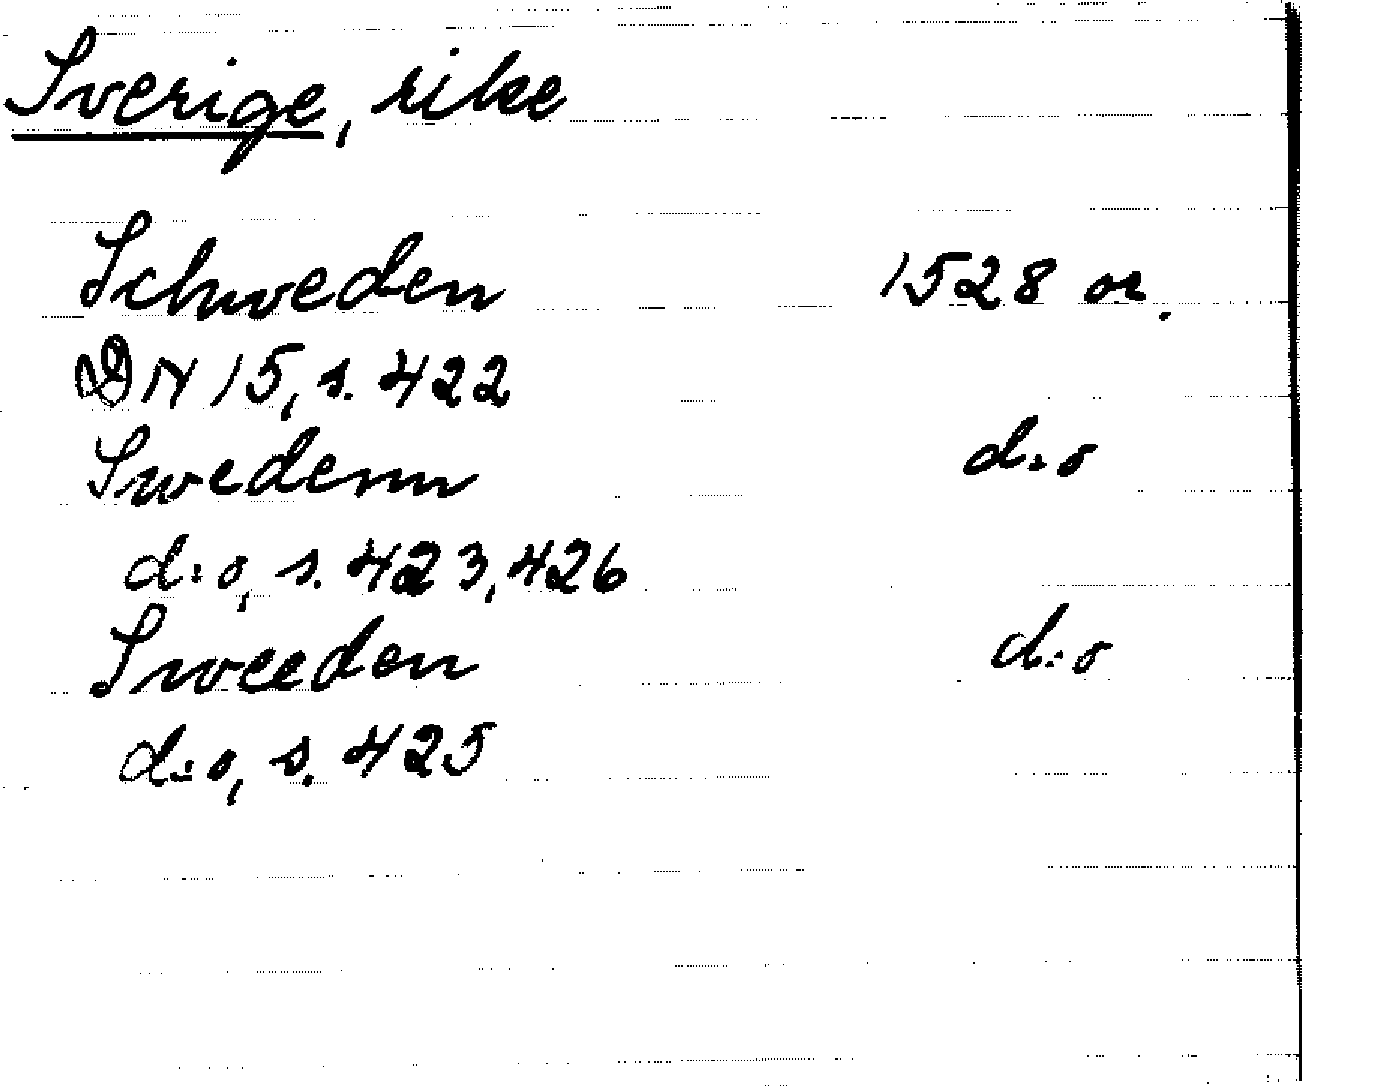 Sverige, rike
Schweden 1528 or.
DN 15, s. 422
Swedenn d:o
d:o, s. 423, 426
Sweeden d:o
d:o, s. 425